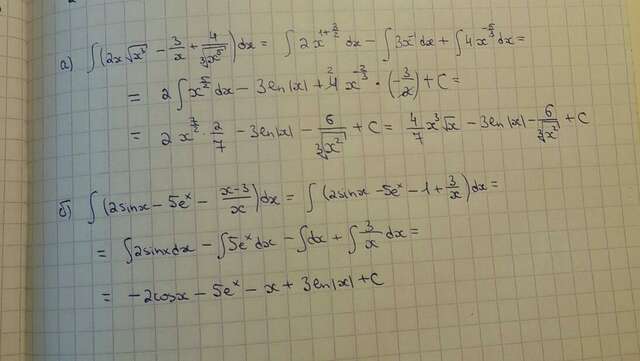 а) ∫(2x√x³ − 3/x + 4/³√x⁵)dx = ∫2x^(1+3/2)dx − ∫3x⁻¹dx + ∫4x^(−5/3)dx =
= 2∫x^(5/2)dx − 3ln|x| + 4x^(−2/3)·(−3/2) + C =
= 2x^(7/2)·2/7 − 3ln|x| − 6/³√x² + C = 4/7 x³√x − 3ln|x| − 6/³√x² + C
б) ∫(2sinx − 5eˣ − (x−3)/x)dx = ∫(2sinx − 5eˣ − 1 + 3/x)dx =
= ∫2sinxdx − ∫5eˣdx − ∫dx + ∫3/x dx =
= −2cosx − 5eˣ − x + 3ln|x| + C